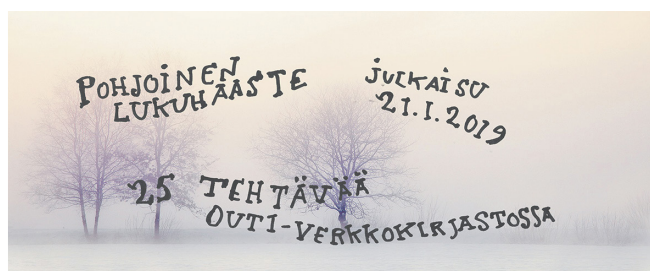 POHJOINEN
LUKUHAASTE
JULKAISU
21.1.2019
25 TEHTÄVÄÄ
OUTI-VERKKOKIRJASTOSSA